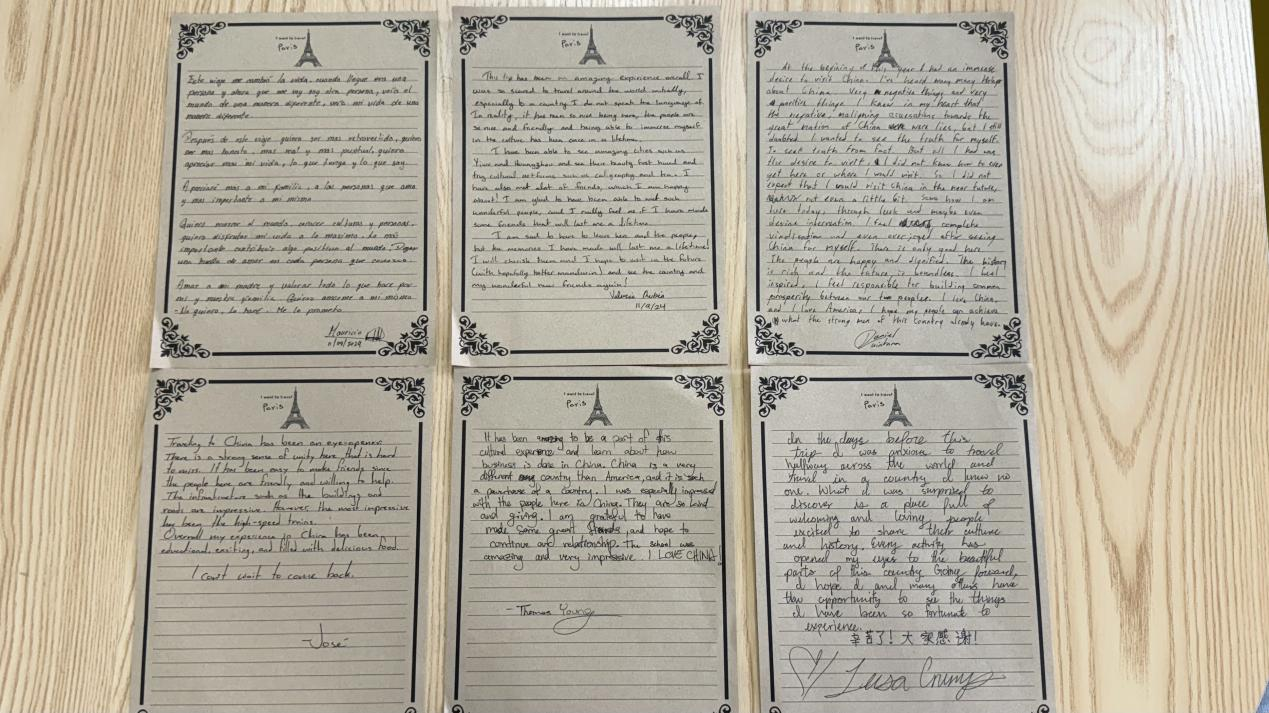 I want to travel
Paris
Este viaje me cambió la vida, cuando llegue era una
persona y ahora que me voy soy otra persona, veo el
mundo de una manera diferente, veo mi vida de una
manera diferente
Después de este viaje quiero ser mas extrovertido, quiero
ser mas honesto, mas real y mas puntual, quiero
apreciar mas mi vida, lo que tengo y lo que soy
mas a mi familia, a las personas que amo
y mas importante a mi mismo
Quiero mostrar al mundo, conocer culturas y personas,
quiero disfrutar mi vida a lo maximo, lo mas
importante contribuir algo positivo al mundo. Dejar
una huella de amor en cada persona que conozco.
Amar a mi madre y valorar todo lo que hace por
mi y nuestra familia. Quiero amarme a mi mismo
- Lo quiero, lo haré. Me lo prometo
Mauricio
11/09/2024
I want to travel
Paris
This trip has been an amazing experience overall I
was so scared to travel around the world initially,
especially to a country I do not speak the language of.
In reality, it has been so nice being here, the people are
so nice and friendly and being able to immerse myself
in the culture has been once in a lifetime.
I have been able to see amazing cities such as
Yiwu and Hangzhou and see there beauty first hand and
try cultural artforms such as caligraphy and tea. I
have also met alot of friends, which I am happy
about! I am glad to have been able to met such
wonderful people, and I really feel as if I have made
some friends that will last me a lifetime.
I am sad to have to leave here and the people,
but the memories I have made will last me a lifetime!
I will cherish them and I hope to visit in the future
(with hopefully better mandarin) and see the country and
my wonderful new friends again!
Valeria Rubio
11/9/24
I want to travel
Paris
At the begining of this year I had an immense
desire to visit China. I've heard many many things
about China. Very negative things and very
positive things. I knew in my heart that
the negative, maligning accusations towards the
great nation of China were lies, but I still
doubted. I wanted to see the truth for myself.
To seek truth from fact. But all I had was
the desire to visit, I did not know how to even
get here or where I would visit. So I did not
expect that I would visit China in the near future,
not even a little bit. Some how I am
here today, through luck and maybe even
devine intervention I feel complete
vindication and even overjoyed after seeing
China for myself. There is only good here.
The people are happy and dignified. The history
is rich and the future is boundless. I feel
inspired, I feel responsible for building common
prosperity between our two peoples. I love China,
and I love America, I hope my people can achieve
what the strong men of this country already have.
Daniel
I want to travel
Paris
Traveling to China has been an eye-opener.
There is a strong sense of unity here that is hard
to miss. It has been easy to make friends since
the people here are friendly and willing to help.
The infrastructure such as the buildings and
roads are impressive. However, the most impressive
has been the high-speed trains.
Overall my experience in China has been
educational, exciting, and filled with delicious food.
I can't wait to come back.
-José
I want to travel
Paris
It has been amazing to be a part of this
cultural experience and learn about how
business is done in China. China is a very
different country than America, and it is such
a powerhouse of a country. I was especially impressed
with the people here in China. They are so kind
and giving. I am grateful to have
made some great friends and hope to
continue are relationship. The school was
amazing and very impressive. I LOVE CHINA!
- Thomas Young
I want to travel
Paris
In the days before this
trip I was anxious to travel
halfway across the world and
travel in a country I knew no
one. What I was surprised to
discover is a place full of
welcoming and loving people
excited to share their culture
and history. Every activity has
opened my eyes to the beautiful
parts of this country. Going forward,
I hope I and many others have
the opportunity to see the things
I have been so fortunate to
experience.
辛苦了! 大家感谢!